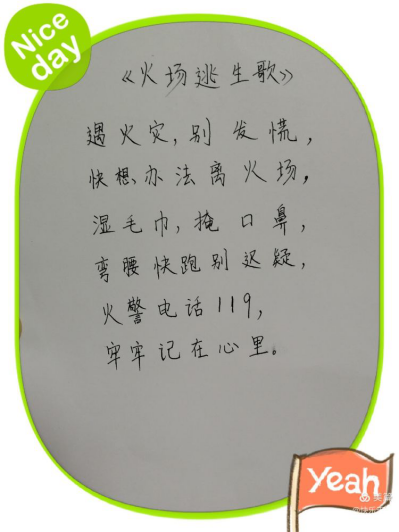 Nice
day
《火场逃生歌》
遇火灾,别发慌,
快想办法离火场,
湿毛巾,掩口鼻,
弯腰快跑别迟疑,
火警电话119,
牢牢记在心里。
Yeah